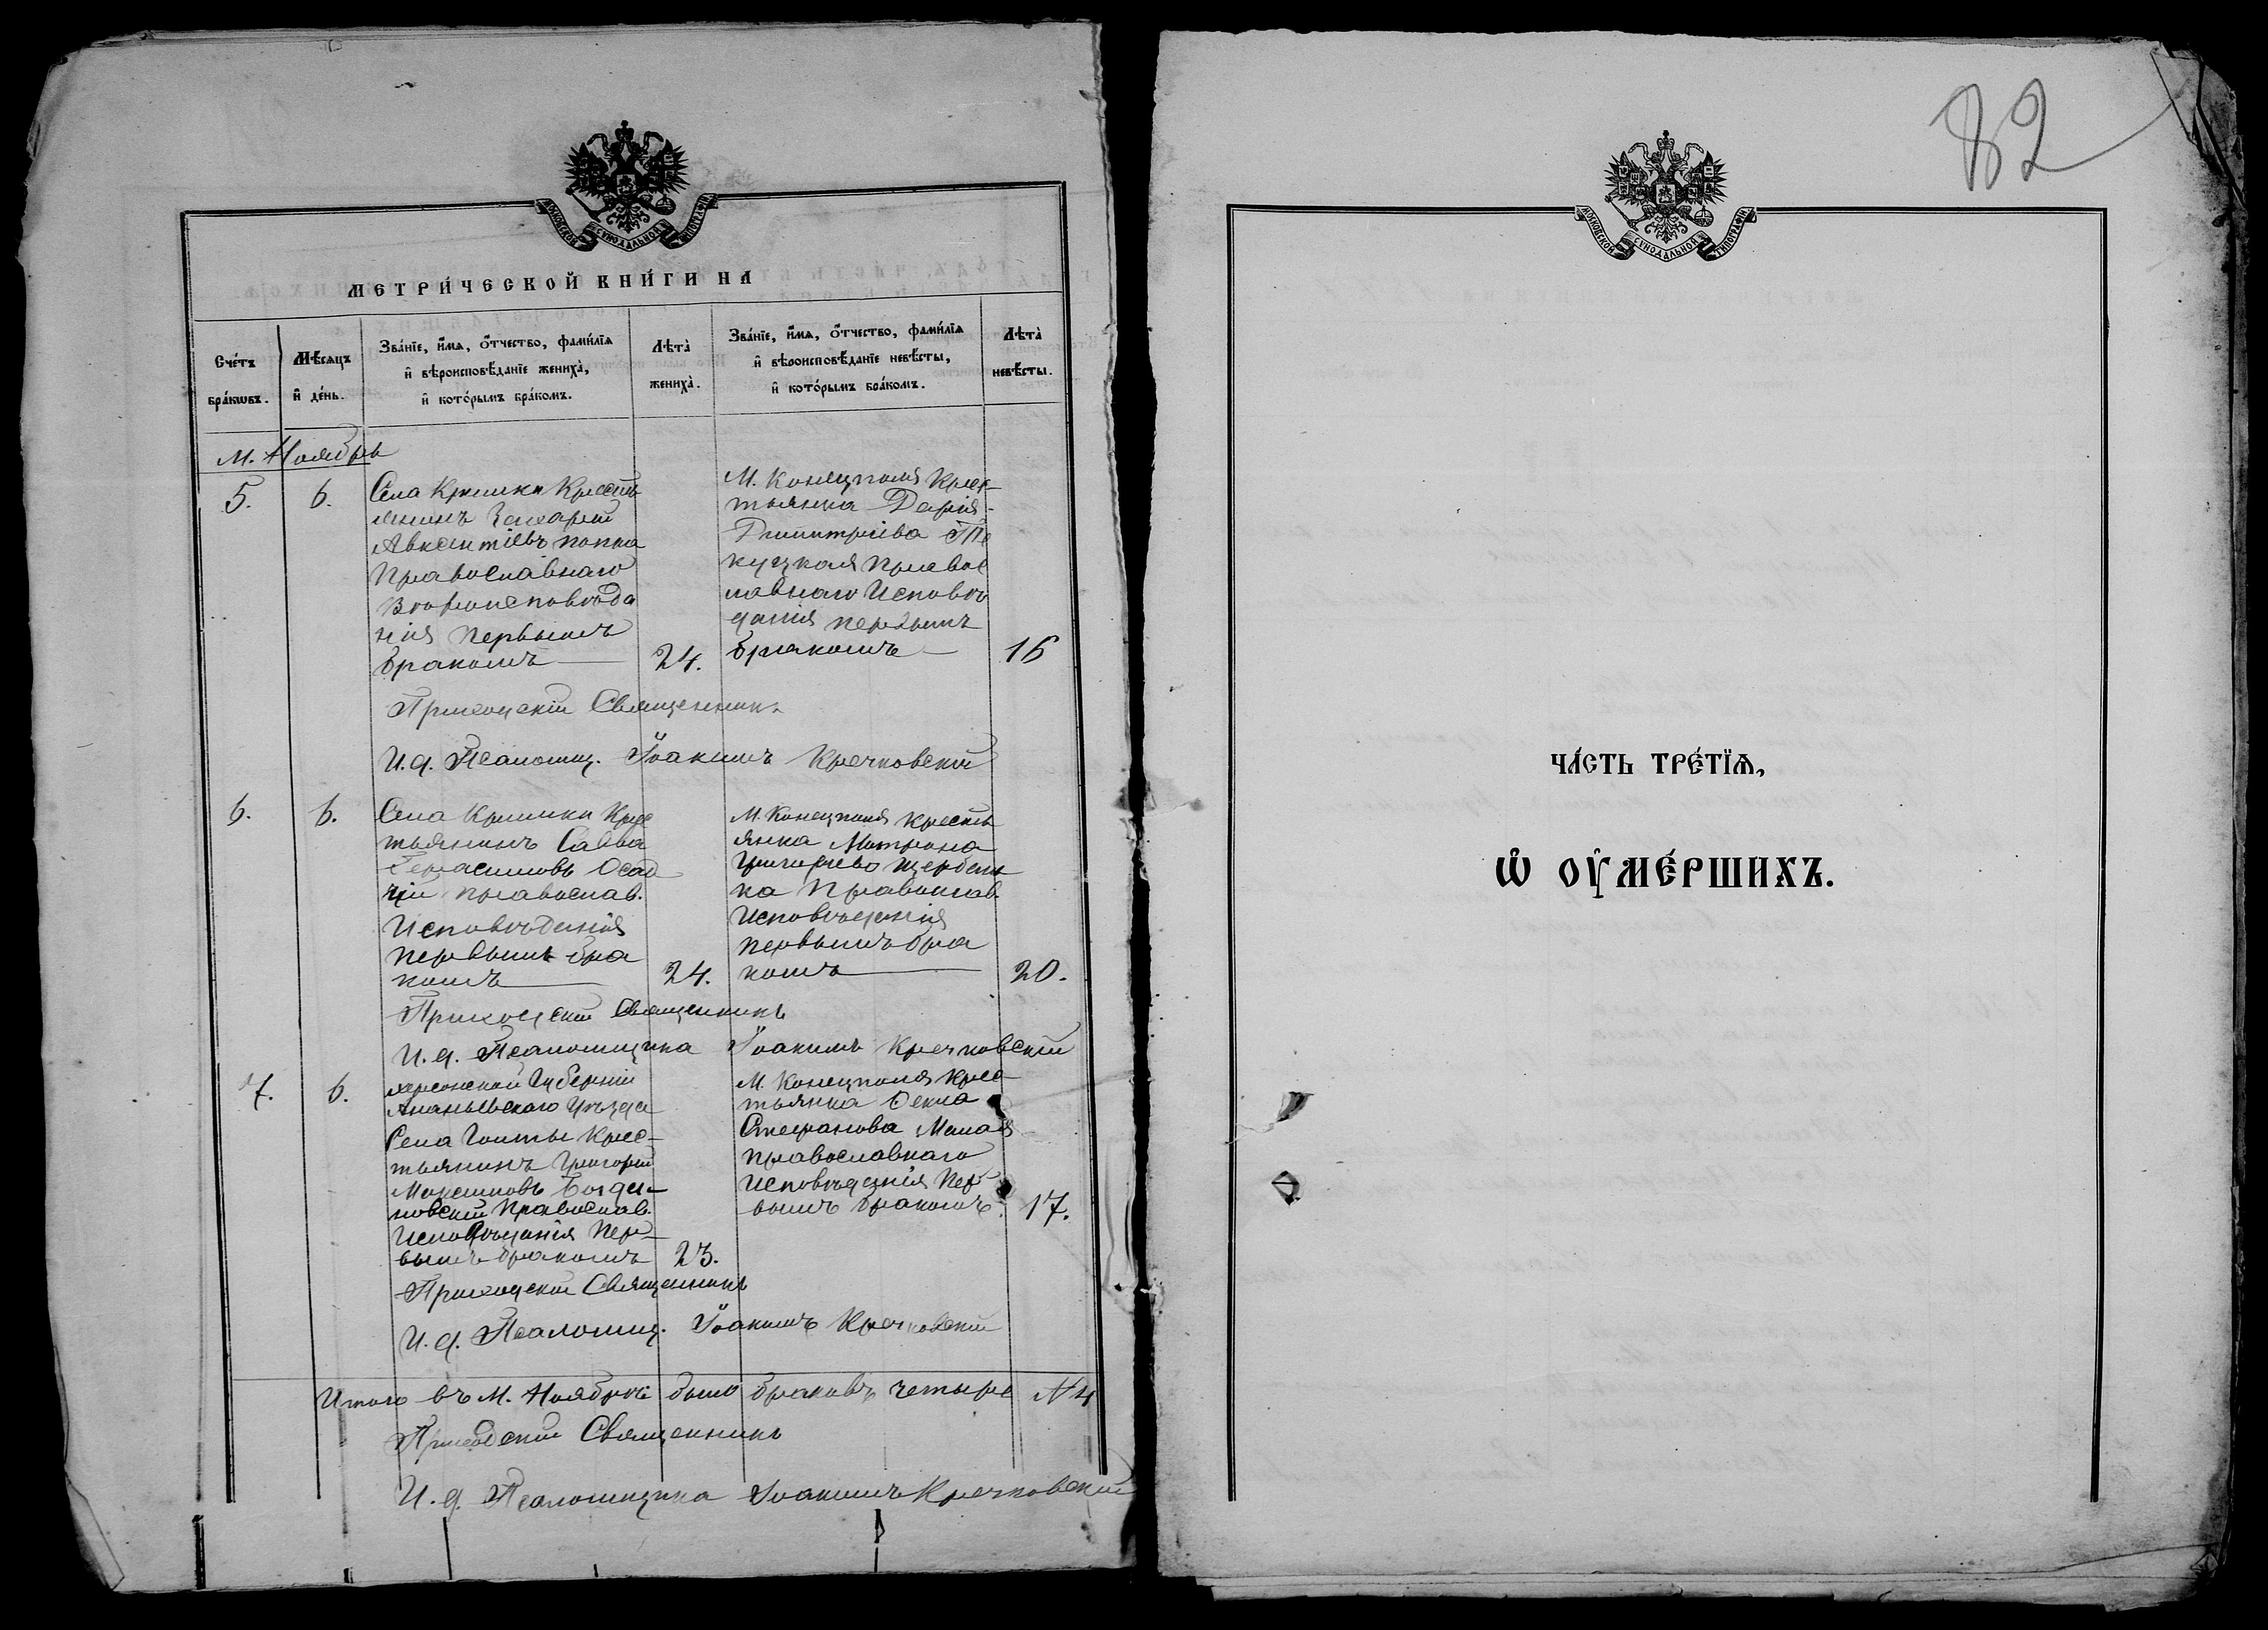 82
МОСКОВСКОЙ СѴНОДАЛЬНОЙ ТИПОГРАФІИ
МЕТРИ́ЧЕСКОЙ КНИ́ГИ НА
Сче́тъ бра́кѡвъ.
Мѣ́сяцъ и де́нь.
Зва́нїе, и́мя, о́тчество, фами́лїя и вѣроисповѣ́данїе жениха̀, и кото́рымъ бра́комъ.
Лѣта̀ жениха̀.
Зва́нїе, и́мя, о́тчество, фами́лїя и вѣроисповѣ́данїе невѣ́сты, и кото́рымъ бра́комъ.
Лѣта̀ невѣ́сты.
М. Ноябрь
5.
6.
Села Кримки Кресть
янинъ Захарій
Авксентіевъ Попка
Православнаго
Вѣроисповѣда
нія Первымъ
бракомъ
24.
М. Конецполя Крес-
тьянка Дарія
Димитріева Те
куцкая Правос
лавнаго Исповѣ
данія первымъ
бракомъ
16
Приходскій Священникъ
И. д. Псаломщ. Іоакимъ Кречковскій
6.
6.
Села Кримки Крес
тьянинъ Савва
Герасимовъ Осад
чій православ.
Исповѣданія
первымъ бра
комъ
24.
М. Конецполя Кресть
янка Матрона
Григорьева Щербань
ка Православ.
Исповѣданія
первымъ бра
комъ
20.
Приходскій Священникъ
И. д. Псаломщика Іоакимъ Кречковскій
7.
6.
Херсонской Губерніи
Ананьевскаго Уѣзда
Села Гольты Крес-
тьянинъ Григорій
Максимовъ Богда-
новскій Православ.
Исповѣданія Пер-
вымъ бракомъ
23.
М. Конецполя Крес-
тьянка Фекла
Стефанова Малая
православнаго
Исповѣданія Пер-
вымъ бракомъ.
17.
Приходскій Священникъ
И. д. Псаломщ. Іоакимъ Кречковскій
Итого въ М. Ноябрѣ было браковъ четыре № 4
Приходскій Священникъ
И. д. Псаломщика Іоакимъ Кречковскій
МОСКОВСКОЙ СѴНОДАЛЬНОЙ ТИПОГРАФІИ
ЧА́СТЬ ТРЕ́ТЇѦ,
Ѡ ОУМЕ́РШИХЪ.